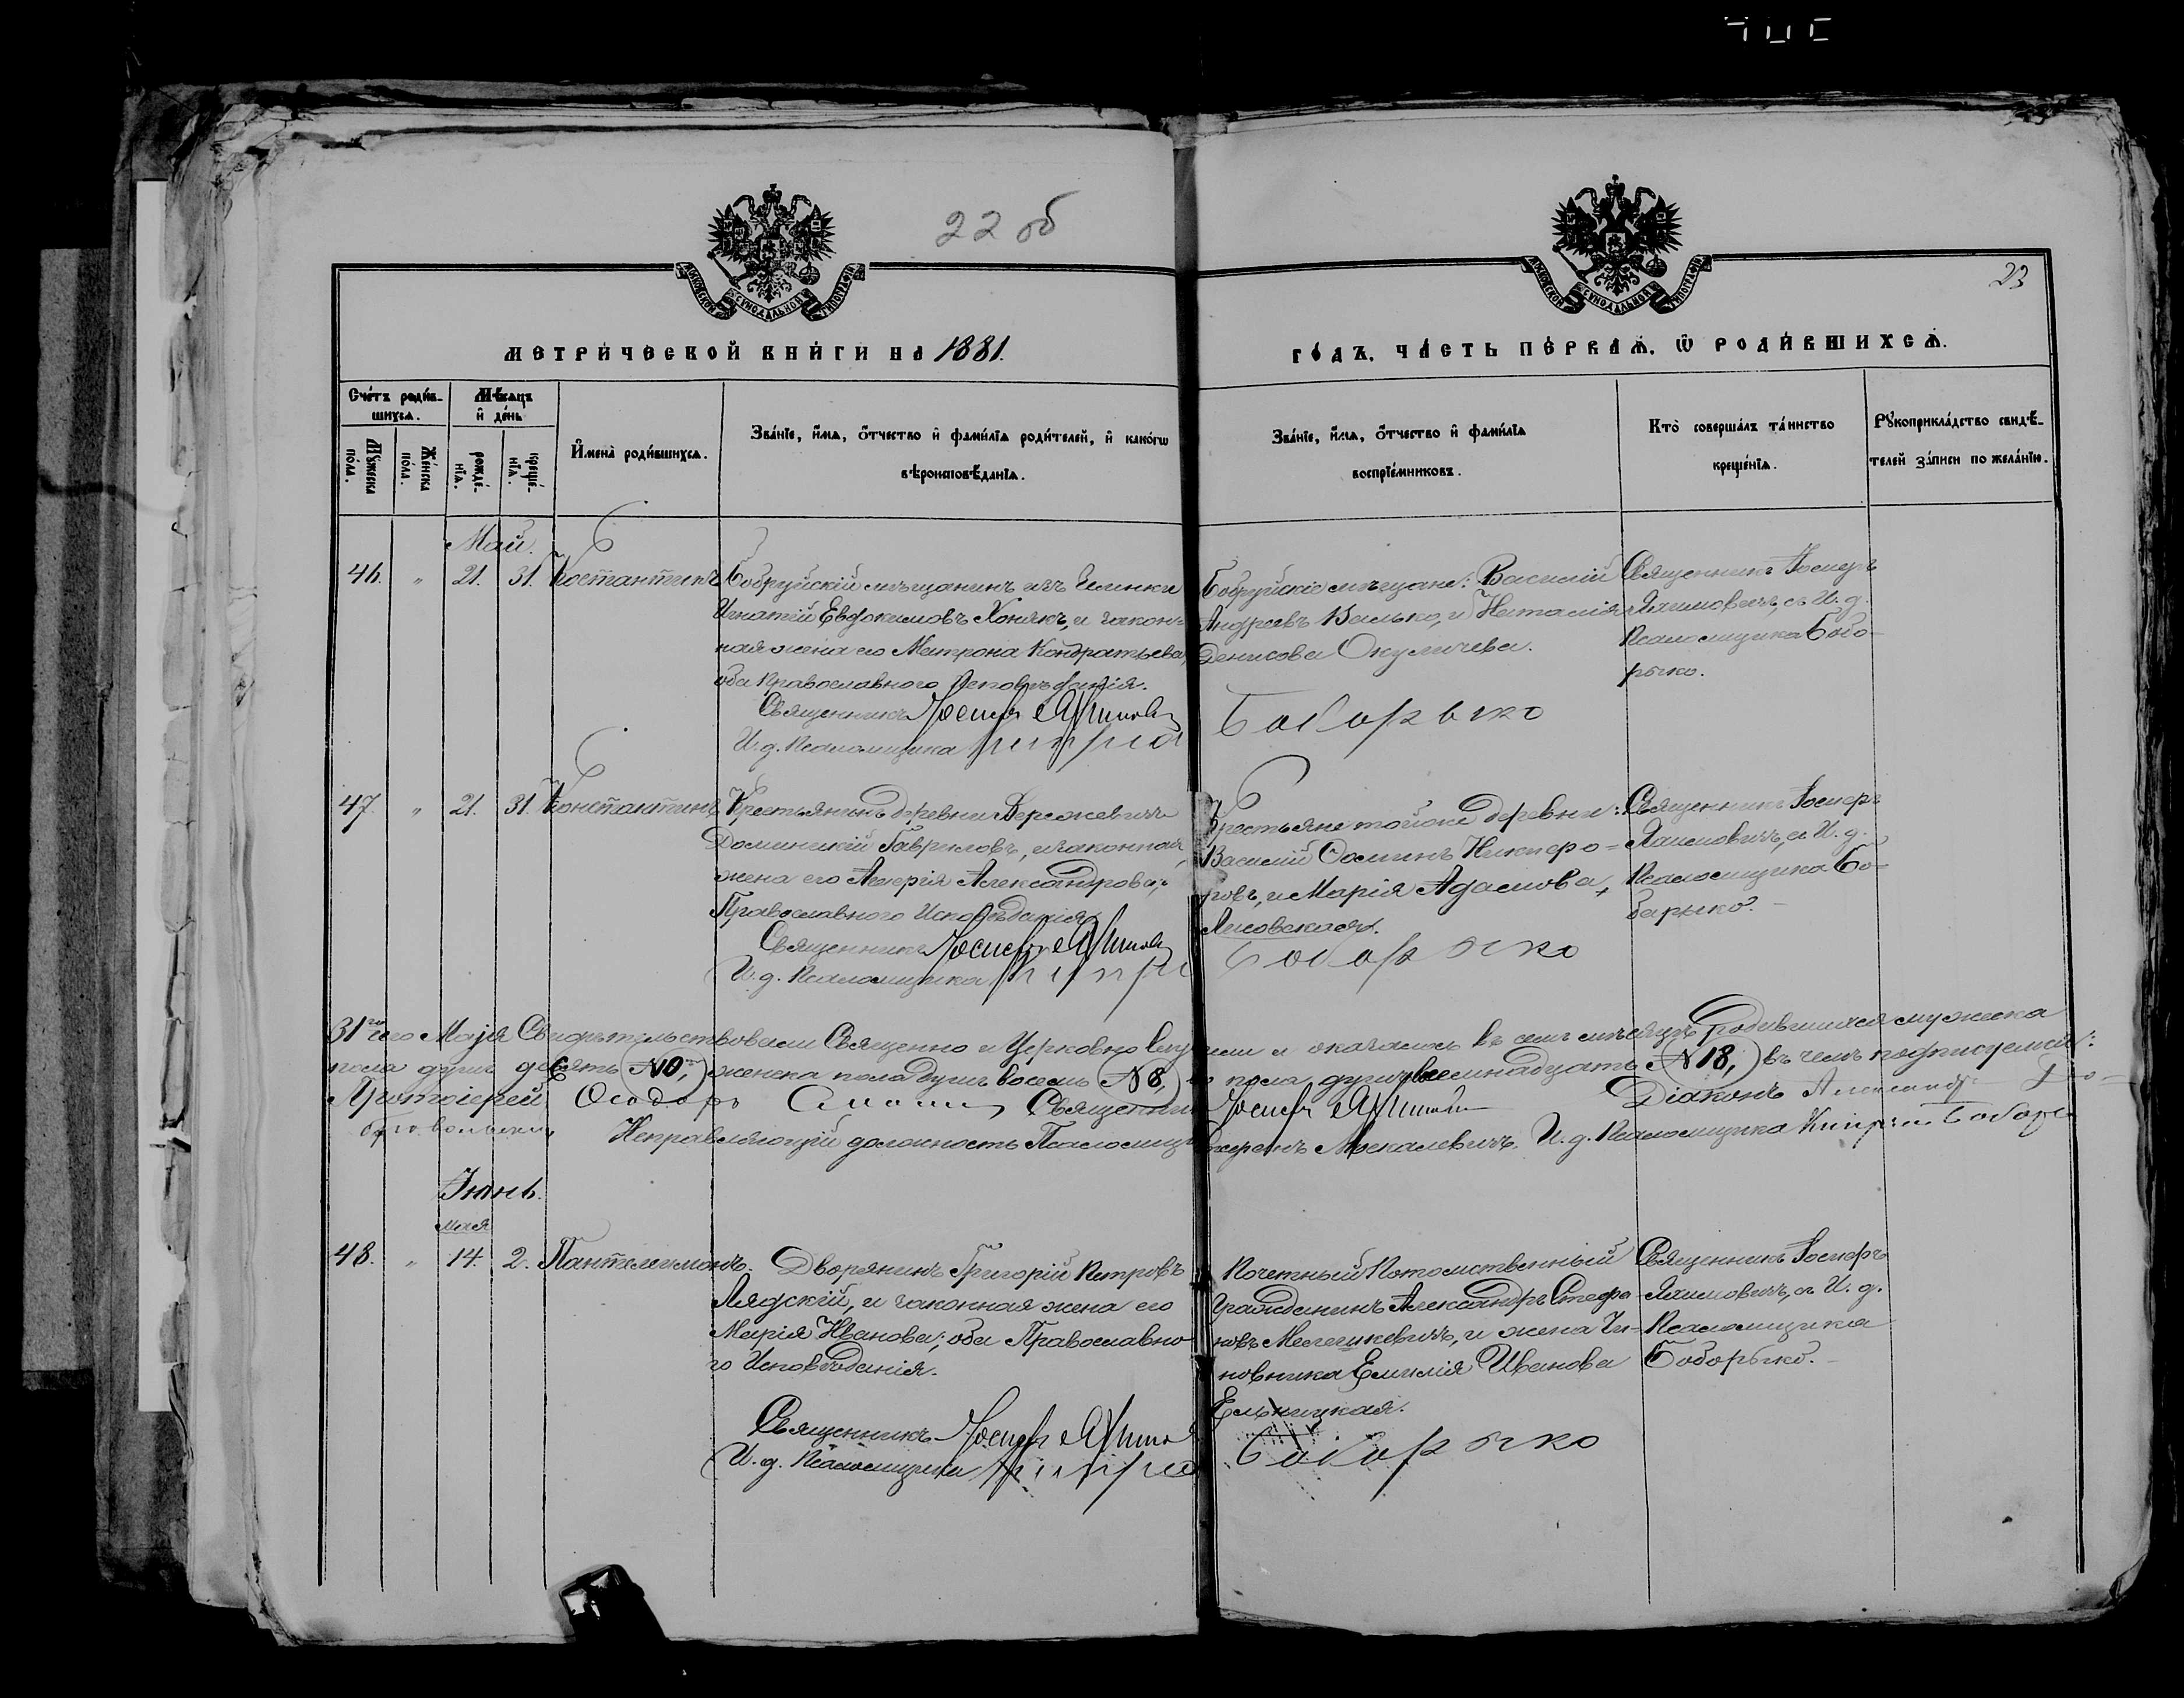 22 об
МОСКОВСКОЙ СѴНОДАЛЬНОЙ ТИПОГРАФІИ
МОСКОВСКОЙ СѴНОДАЛЬНОЙ ТИПОГРАФІИ
23
МЕТРИ́ЧЕСКОЙ КНИ́ГИ НА 1881.
ГО́ДЪ, ЧА́СТЬ ПЕ́РВАѦ, Ѿ РОДИ́ВШИХСѦ.
Сче́тъ роди́в-
шихсѧ.
Мѣ́сѧцъ
и҆ де́нь
Мꙋ́жеска
по́ла.
Же́нска
по́ла.
рожде́-
нїѧ.
креще́-
нїѧ.
И҆мена̀ роди́вшихсѧ.
Зва́нїе, и҆́мѧ, ѻ҆́тчество и҆ фами́лїѧ роди́телей, и҆ како́гѡ
вѣроисповѣ́данїѧ.
Зва́нїе, и҆́мѧ, ѻ҆́тчество и҆ фами́лїѧ
воспрїе́мниковъ.
Кто̀ соверша́лъ та́инство
креще́нїѧ.
Рꙋкоприкла́дство свидѣ́-
телей за́писи по жела́нїю.
Май.
46. " 21. 31. Костантинъ
Бобруйскій мѣщанинъ изъ
Игнатій Евдокимовъ Хонякъ, и закон=
ная жена его Матрона Кондратьева,
оба Православного Исповѣданія.
Священникъ Іосифъ Яхимовичъ
И. д. Псаломщика Кипріа
Бобруйскіе мѣщане: Василій
Андреевъ Валько, и Наталія
Денисова Окуличева.
Боборыко
Священникъ Іосифъ
Яхимовичъ, съ И. д.
Псаломщика Бобо-
рыко.
47. " 21. 31. Константинъ
Крестьянинъ деревни Бережевичъ
Доминикій Гавриловъ, и законная
жена его Александрова,
Православного Исповѣданія.
Священникъ Іосифъ Яхимовичъ
И. д. Псаломщика Кипрі
Крестьяне тойже деревни:
Василій Фоминъ Никифо=
ровъ, и Марія Адамова,
Лисовская.
Боборыко
Священникъ Іосифъ
Яхимовичъ, съ И. д.
Псаломщика Бо-
барыко.
31го сего Маія Свидѣтельствовали Священно и Церковно и оказалось въ семъ мѣсяцѣ родившихся мужеска
пола душъ десять N10, женска пола душъ восемь N8, пола душъ восемнадцать N18, въ чемъ подписуемся:
Протоіерей Ѳеодоръ Священникъ Іосифъ Яхимовичъ Діаконъ Александръ
Исправляющій должность Псаломщ Москалевичъ. И. д. Псаломщика Кипріанъ Боборы
Іюнь.
мая
48. " 14. 2. Пантелеимонъ.
Дворянинъ Григорій Петровъ
Лядскій, и законная жена его
Марія Иванова; оба Православно
го Исповѣданія.
Священникъ Іосифъ Яхимов
И. д. Псаломщика Кипріа
Почетный Потомственный
Гражданинъ Александръ Стефа-
новъ Мелешкевичъ, и жена Чи-
новника Емилія Иванова
Ельницкая.
Боборыко
Священникъ Іосифъ
Яхимовичъ, съ И. д.
Псаломщика
Боборыко.